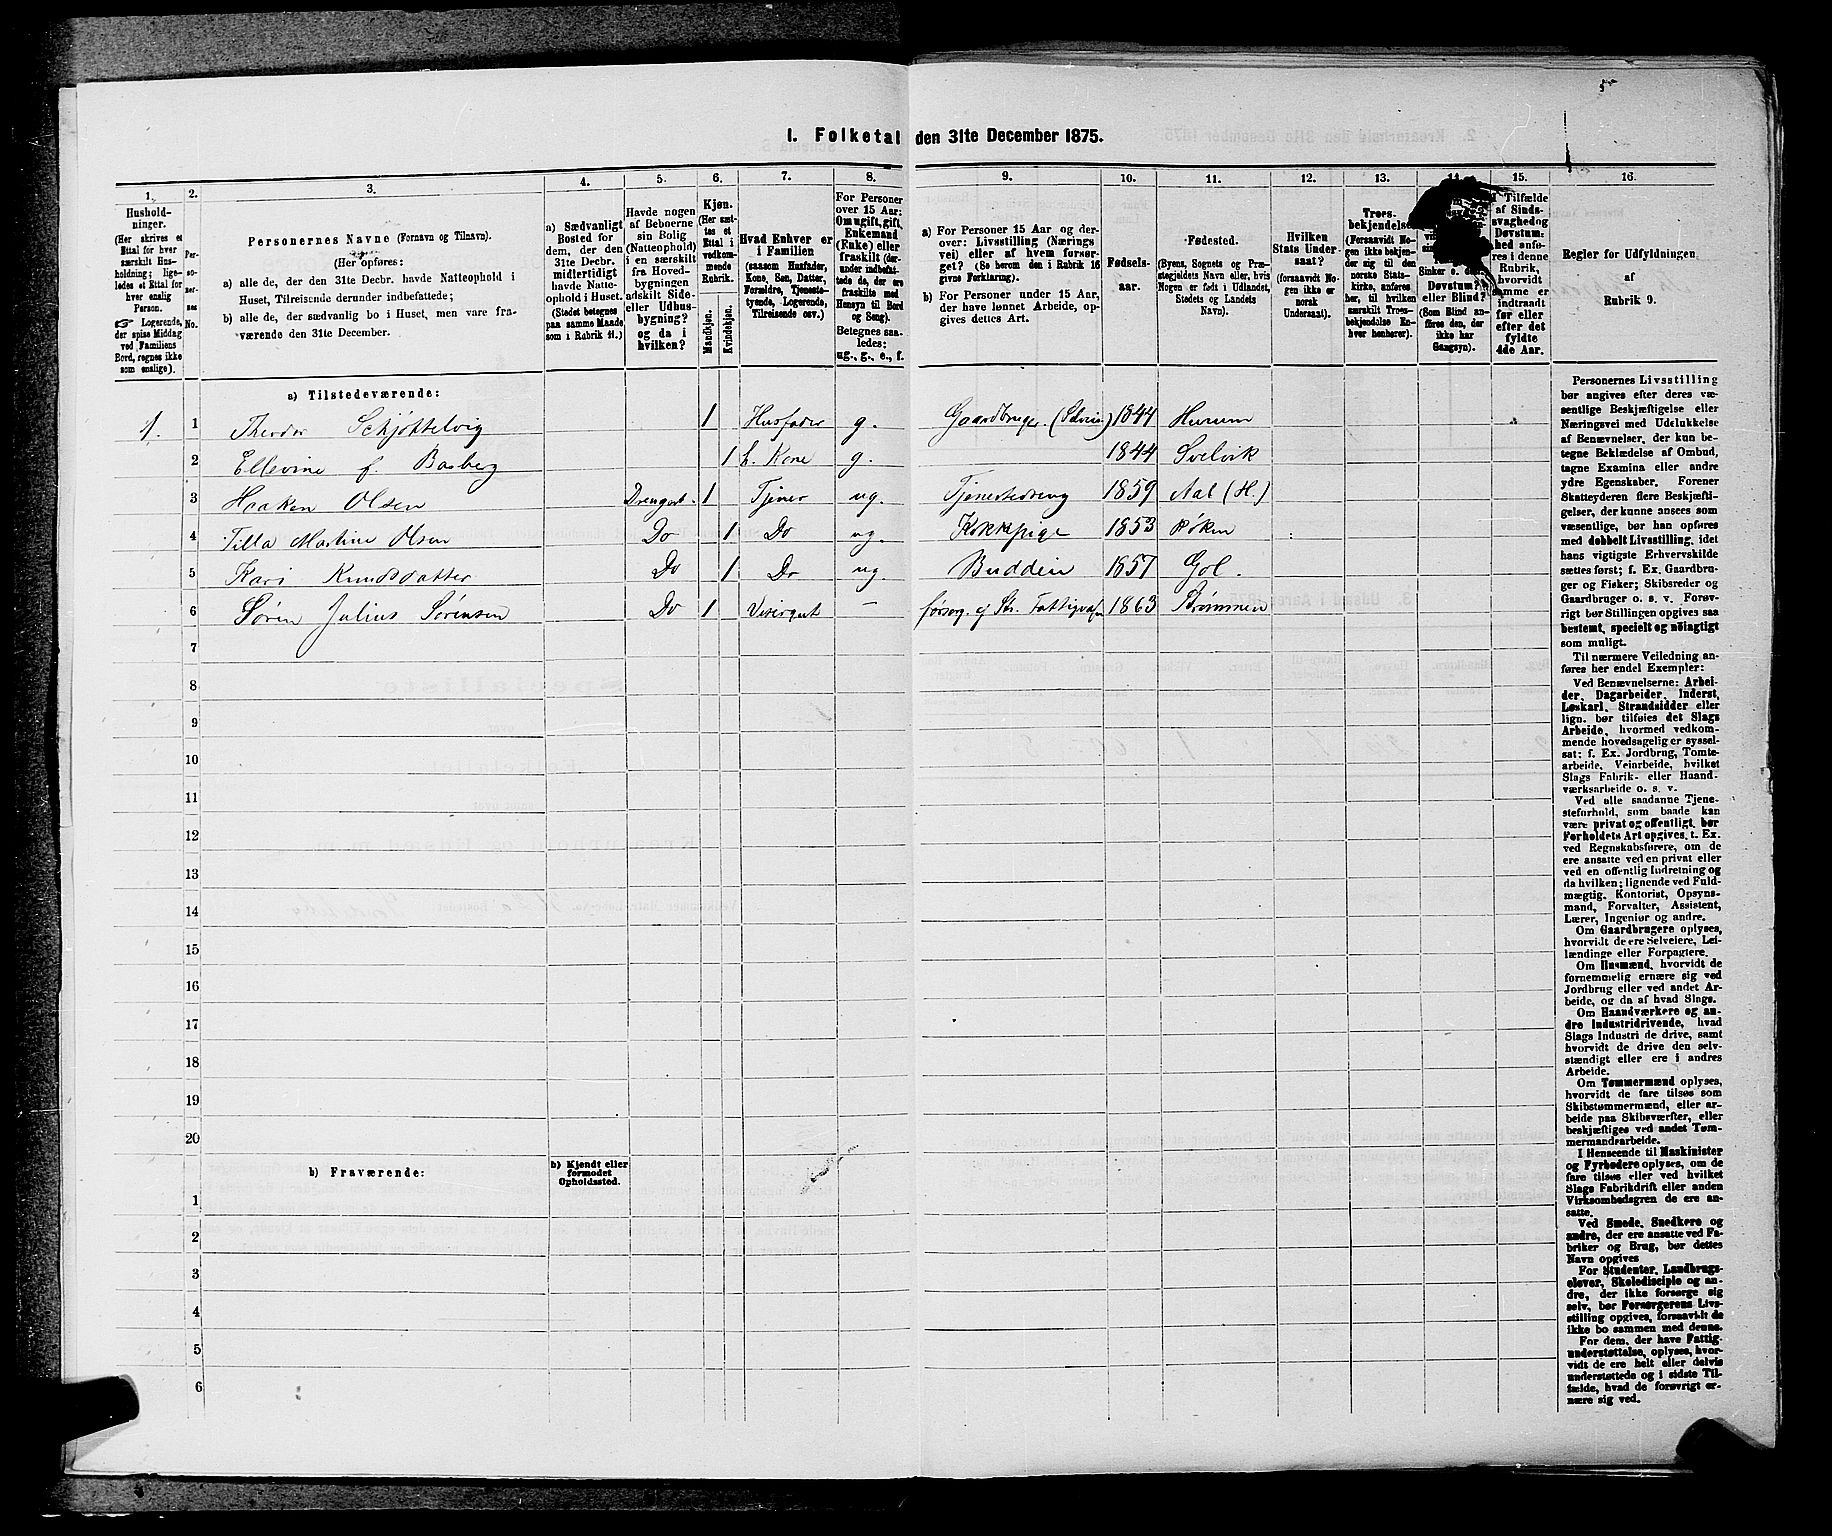 5
I. Folketal den 31te December 1875.
1. 2. 3. 4. 5. 6. 7. 8. 9. 10. 11. 12. 13. 14. 15. 16.
Hushold-
ninger.
(Her skrives et
Ettal for hver
særskilt Hus-
holdning; lige-
ledes et Ettal for
hver enslig
Person.
☞ Logerende,
der spise Middag
ved Familiens
Bord, regnes ikke
som enslige).
Per-
so-
ner-
nes
No.
Personernes Navne (Fornavn og Tilnavn).
(Her opføres:
a) alle de, der den 31te Decbr. havde Natteophold i
Huset, Tilreisende derunder indbefattede;
b) alle de, der sædvanlig bo i Huset, men vare fra-
værende den 31te December.
a) Sædvanligt
Bosted for
dem, der den
31te Decbr.
midlertidigt
havde Natte-
ophold i Huset.
(Stedet betegnes
paa samme Maade
som i Rubrik 11.)
Havde nogen
af Beboerne
sin Bolig
(Natteophold)
i en særskilt
fra Hoved-
bygningen
adskilt Side-
eller Udhus-
bygning?
og da i
hvilken?
Kjøn.
(Her sæt-
tes et
Ettal i
vedkom-
mende
Rubrik.
Mandkjøn.
Kvindekjøn.
Hvad Enhver er
i Familien
(saasom Husfader,
Kone, Søn, Datter,
Forældre, Tjeneste-
tyende, Logerende,
Tilreisende osv.)
For Personer
over 15 Aar:
Om ugift, gift,
Enkemand
(Enke) eller
fraskilt (der-
under indbefat-
tede de, der ere
fraskilte med
Hensyn til Bord
og Seng).
Betegnes saa-
ledes:
ug., g., e., f.
a) For Personer 15 Aar og der-
over: Livsstilling (Nærings
vei) eller af hvem forsør-
get? (Se herom den i Rubrik 16
givne Forklaring).
b) For Personer under 15 Aar,
der have lønnet Arbeide, op-
gives dettes Art.
Fødsels-
aar.
Fødested.
(Byens, Sognets og Præ-
stegjeldets Navn eller, hvis
Nogen er født i Udlandet,
Stedets og Landets
Navn).
Hvilken
Stats Under-
saat?
(forsaavidt No-
gen ikke er
norsk
Undersaat).
Troes-
bekjendelse
(Forsaavidt No-
gen ikke bekjen-
der sig til den
norske Stats-
kirke, anføres
her, til hvilken
særskilt Troes-
bekjendelse En-
hver henhører).
Døvstum?
eller Blind?
(Som Blind an-
føres den, der
ikke har
Gangsyn).
Tilfælde
af Sinds-
svaghed og
Døvstum-
hed anfø-
res i denne
Rubrik,
hvorvidt
samme er
indtraadt
før eller
efter det
fyldte
4de Aar.
Regler for Udfyldningen
af
Rubrik 9.
a) Tilstedeværende:
1. 1 Theodor Schjøttelvig 1 Husfader g. Gaardbruger. 1844 Hurum
2 Ellevine f. Basberg 1 h. Kone g. 1844 Svelvik
3 Haaken Olsen 1 Tjener ug. Tjenestedreng 1859 Aal (H.)
4 Tilla Martine Olsen Do 1 Do ug. Kokkepige 1853 Røken
5 Kari Knudsdatter Do 1 Do ug Buddeie 1857 Gol.
6 Søren Julius Sørensen Do 1 — forsørg. Str. 1863 Strømmen
7
8
9
10
11
12
13
14
15
16
17
18
19
20
b) Fraværende:
b) Kjendt eller
formodet
Opholdssted.
1
2
3
4
5
6
Personernes Livsstilling
bør angives efter deres væ-
sentlige Beskjæftigelse eller
Næringsvei med Udelukkelse
af Benævnelser, der kun be-
tegne Beklædelse af Ombud,
tagne Examina eller andre
ydre Egenskaber. Forener
Skatteyderen flere Beskjæfti-
gelser, der kunne ansees som
væsentlige, bør han opføres
med dobbelt Livsstilling, idet
hans vigtigste Erhvervskilde
sættes først; f. Ex. Gaardbru-
ger og Fisker; Skibsreder og
Gaardbruger o. s. v. Forøv-
rigt bør Stillingen opgives saa
bestemt, specielt og nøiagtigt
som muligt.
Til nærmere Veiledning an-
føres her endel Exempler:
Ved Benævnelserne: Arbei-
der, Dagarbeider, Inderst,
Løskarl, Strandsidder eller
lign. bør tilføies det Slags
Arbeide, hvormed vedkom-
mende hovedsagelig er syssel-
sat; f. Ex. Jordbrug, Tomte-
arbeide, Veiarbeide, hvilket
Slags Fabrik- eller Haand-
værksarbeide o. s. v.
Ved alle saadanne Tjene-
steforhold, som baade kan
være privat og offentligt, bør
Forholdets Art opgives, t. Ex.
ved Regnskabsførere, om de
ere ansatte ved en privat eller
ved en offentlig Indretning og
da hvilken; lignende ved Fuld-
mægtig, Kontorist, Opsyns-
mand, Forvalter, Assistent,
Lærer, Ingeniør og andre.
Om Gaardbrugere oplyses,
hvorvidt de ere Selveiere, Lei-
lændinge eller Forpagtere.
Om Husmænd, hvorvidt de
fornemmelig ernære sig ved
Jordbrug eller ved andet Ar-
beide, og da af hvad Slags.
Om Haandværkere og an-
dre Industridrivende, hvad
Slags Industri de drive, samt
hvorvidt de drive den selv-
stændigt eller ere i andres
Arbeide.
Om Tømmermænd oplyses,
hvorvidt de fare tilsøs som
Skibstømmermænd, eller ar-
beide paa Skibsværfter, eller
beskjæftiges ved andet Tøm-
mermandarbeide.
I Henseende til Maskinister
og Fyrbødere oplyses, om de
fare tilsøs eller ved hvilket
Slags Fabrikdrift eller anden
Virksomhedsgren de ere an-
satte.
Ved Smede, Snedkere og
andre, der ere ansatte ved Fa-
briker og Brug, bør dettes
Navn opgives
For Studenter, Landbrugs-
elever, Skoledisciple og an-
dre, der ikke forsørge sig
selv, bør Forsørgerens Livs-
stilling opgives, forsaavidt de
ikke bo sammen med denne.
For dem, der have Fattig-
understøttelse, oplyses, hvor-
vidt de ere helt eller delvis
understøttede og i sidste Til-
fælde, hvad de forøvrigt er-
nære sig ved.